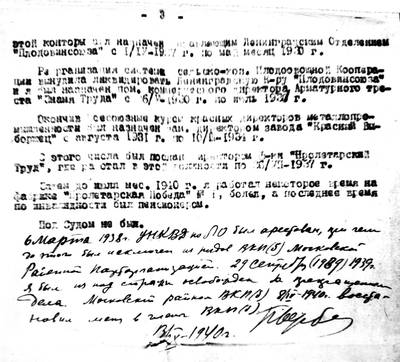 - 3 -
этой конторы был назначен управляющим Ленинградским Отделением
"Плодовинсоюза" с 1/IV-1927 г. по май месяц 1930 г.
Реорганизация система сельско-хоз. Плодоовощной Коопера-
ции вынудила ликвидировать Ленинградскую К-ру "Плодовинсоюза"
и я был назначен пом. коммерческого директора Арматурного тре-
ста "Знамя Труда" с 1930 г. по июль 1931 г.
Окончив Всесоюзные курсы красных директоров металлопро-
мышленности был назначен зам. директором завода "Красный Вы-
боржец" с августа 1931 г. по 1934 г.
С этого числа был послан директором ф-ки "Пролетарский
Труд", где работал в этой должности по 1937 г.
Затем до июля мес. 1940 г. я работал некоторое время на
фабрике "Пролетарская Победа" № болел, а последнее время
по инвалидности был пенсионером.
Под Судом не был.
6 Марта 1938 г. УНКВД по ЛО был арестован, при чем
до этого был исключен из рядов ВКП(б) Московской
Районной Парторганизацией. 29 сентября 1939 г.
я был из под стражи освобожден за прекращением
дела. Московский райком ВКП(б) 1940 г. восста-
новил меня в члены ВКП(б)
1940 г.